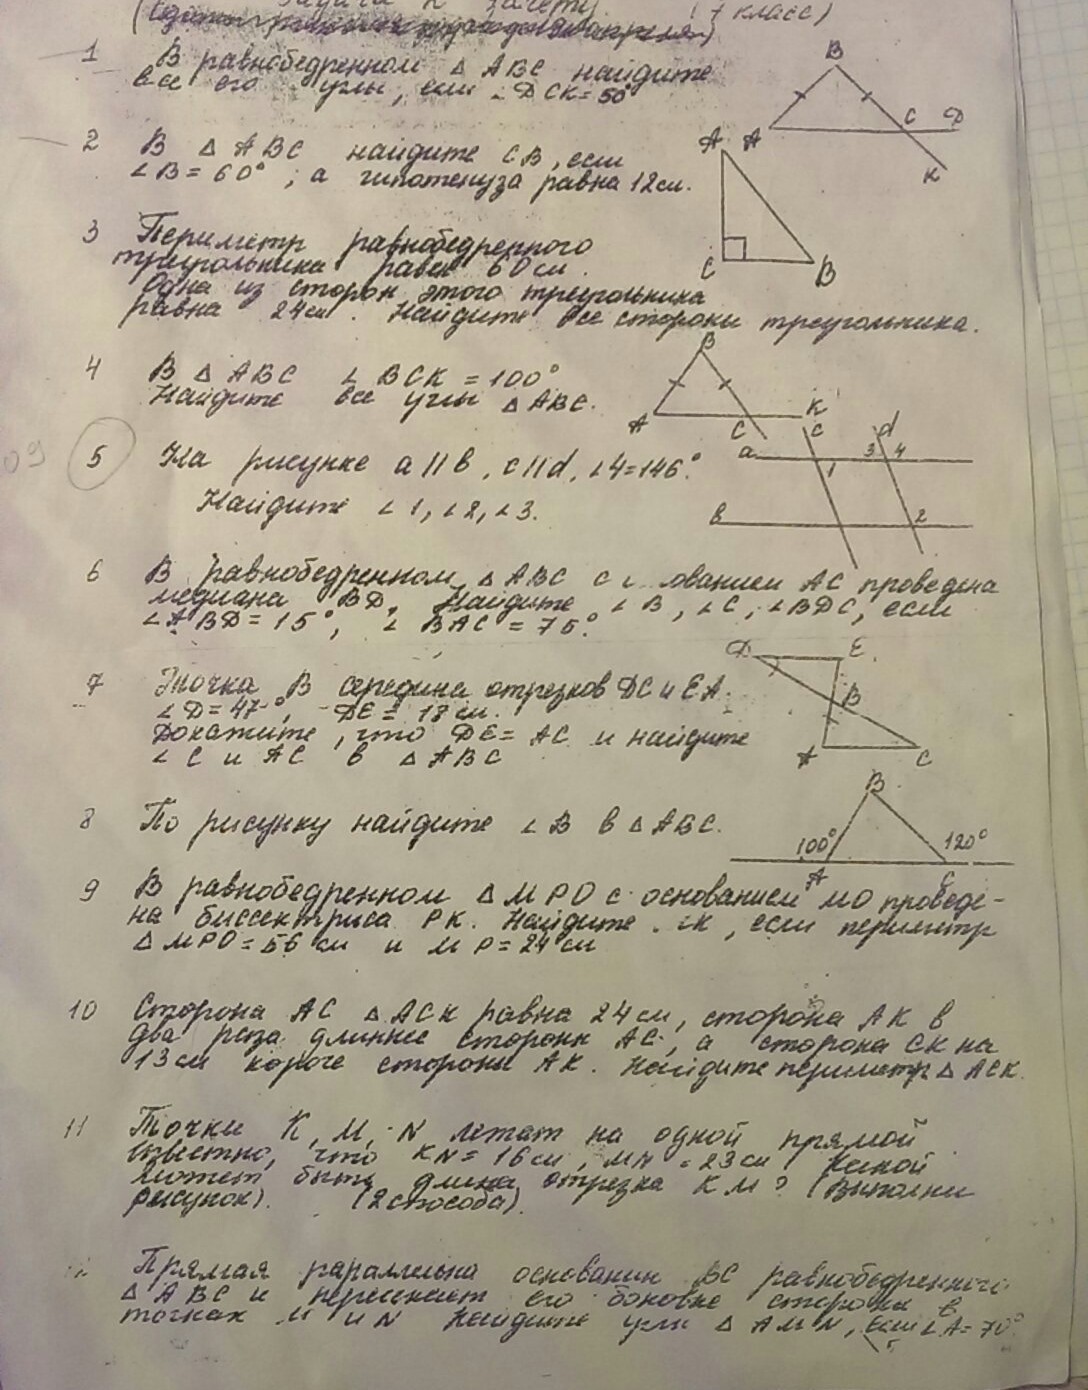 Задачи к зачёту (7 класс)
1 В равнобедренном △ ABC найдите
все его углы, если ∠DCK=50°
B
A
C
D
K
2 В △ ABC найдите CB, если
∠B=60°, а гипотенуза равна 12см.
A
C
B
3 Периметр равнобедренного
треугольника равен 60см.
Одна из сторон этого треугольника
равна 24см. Найдите все стороны треугольника.
4 В △ ABC ∠BCK=100°
Найдите все углы △ABC.
B
A
C
K
5 На рисунке a||b, c||d, ∠4=146°.
Найдите ∠1, ∠2, ∠3.
c
d
a
3
4
1
b
2
09
6 В равнобедренном △ABC с основанием AC проведена
медиана BD. Найдите ∠B, ∠C, ∠BDC, если
∠ABD=15°, ∠BAC=75°.
7 Точка B середина отрезков DC и EA.
∠D=47°, DE=18см.
Докажите, что DE=AC и найдите
∠C и AC в △ABC
D
E
B
A
C
8 По рисунку найдите ∠B в △ABC.
B
100°
120°
A
C
9 В равнобедренном △MPO с основанием MO проведе-
на биссектриса PK. Найдите К, если периметр
△MPO=56см и MP=24см
10 Сторона AC △ACK равна 24см, сторона AK в
два раза длиннее стороны AC, а сторона CK на
13см короче стороны AK. Найдите периметр △ACK.
11 Точки K, M, N лежат на одной прямой
известно, что KN=16см, MN=23см. Какой
может быть длина отрезка KM? (Выполни
рисунок). (2 способа).
Прямая параллельна основанию BC равнобедренного
△ABC и пересекает его боковые стороны в
точках M и N Найдите углы △AMN, если ∠A=70°.